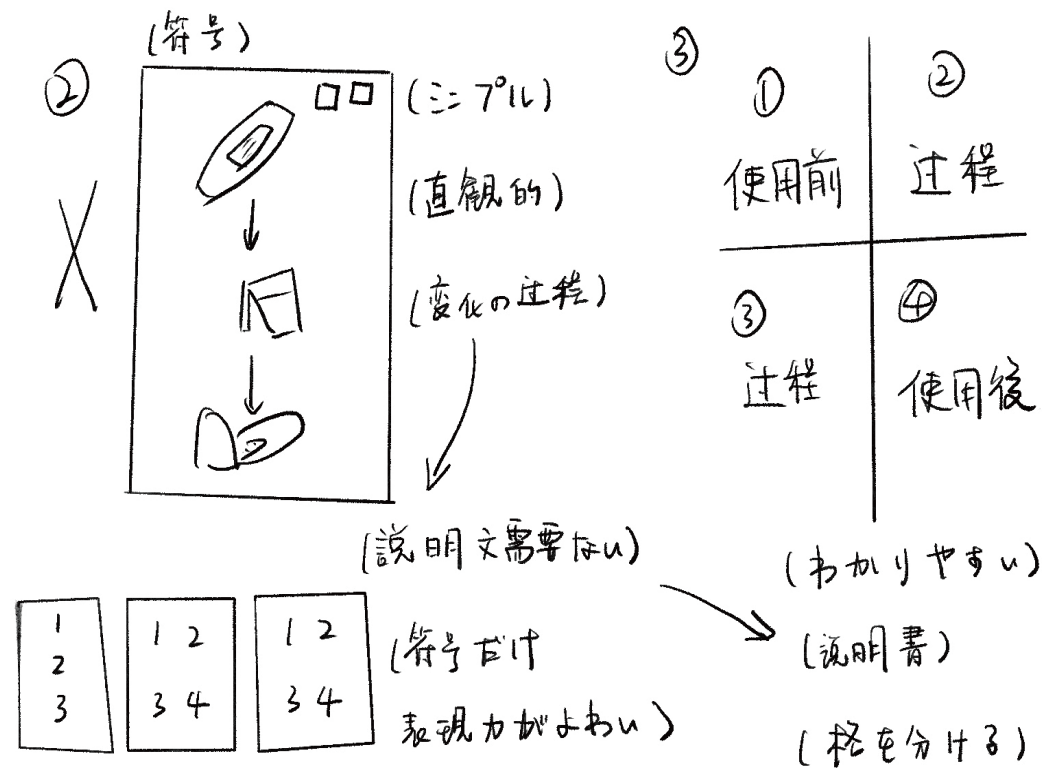 ②
(符号)
(ミニプル)
(直観的)
(変化の过程)
(説明文需要ない)
1
2
3
1 2
3 4
1 2
3 4
(符号だけ
表現力がよわい)
③
① ②
使用前 过程
③ ④
过程 使用後
(わかりやすい)
(説明書)
(格を分ける)